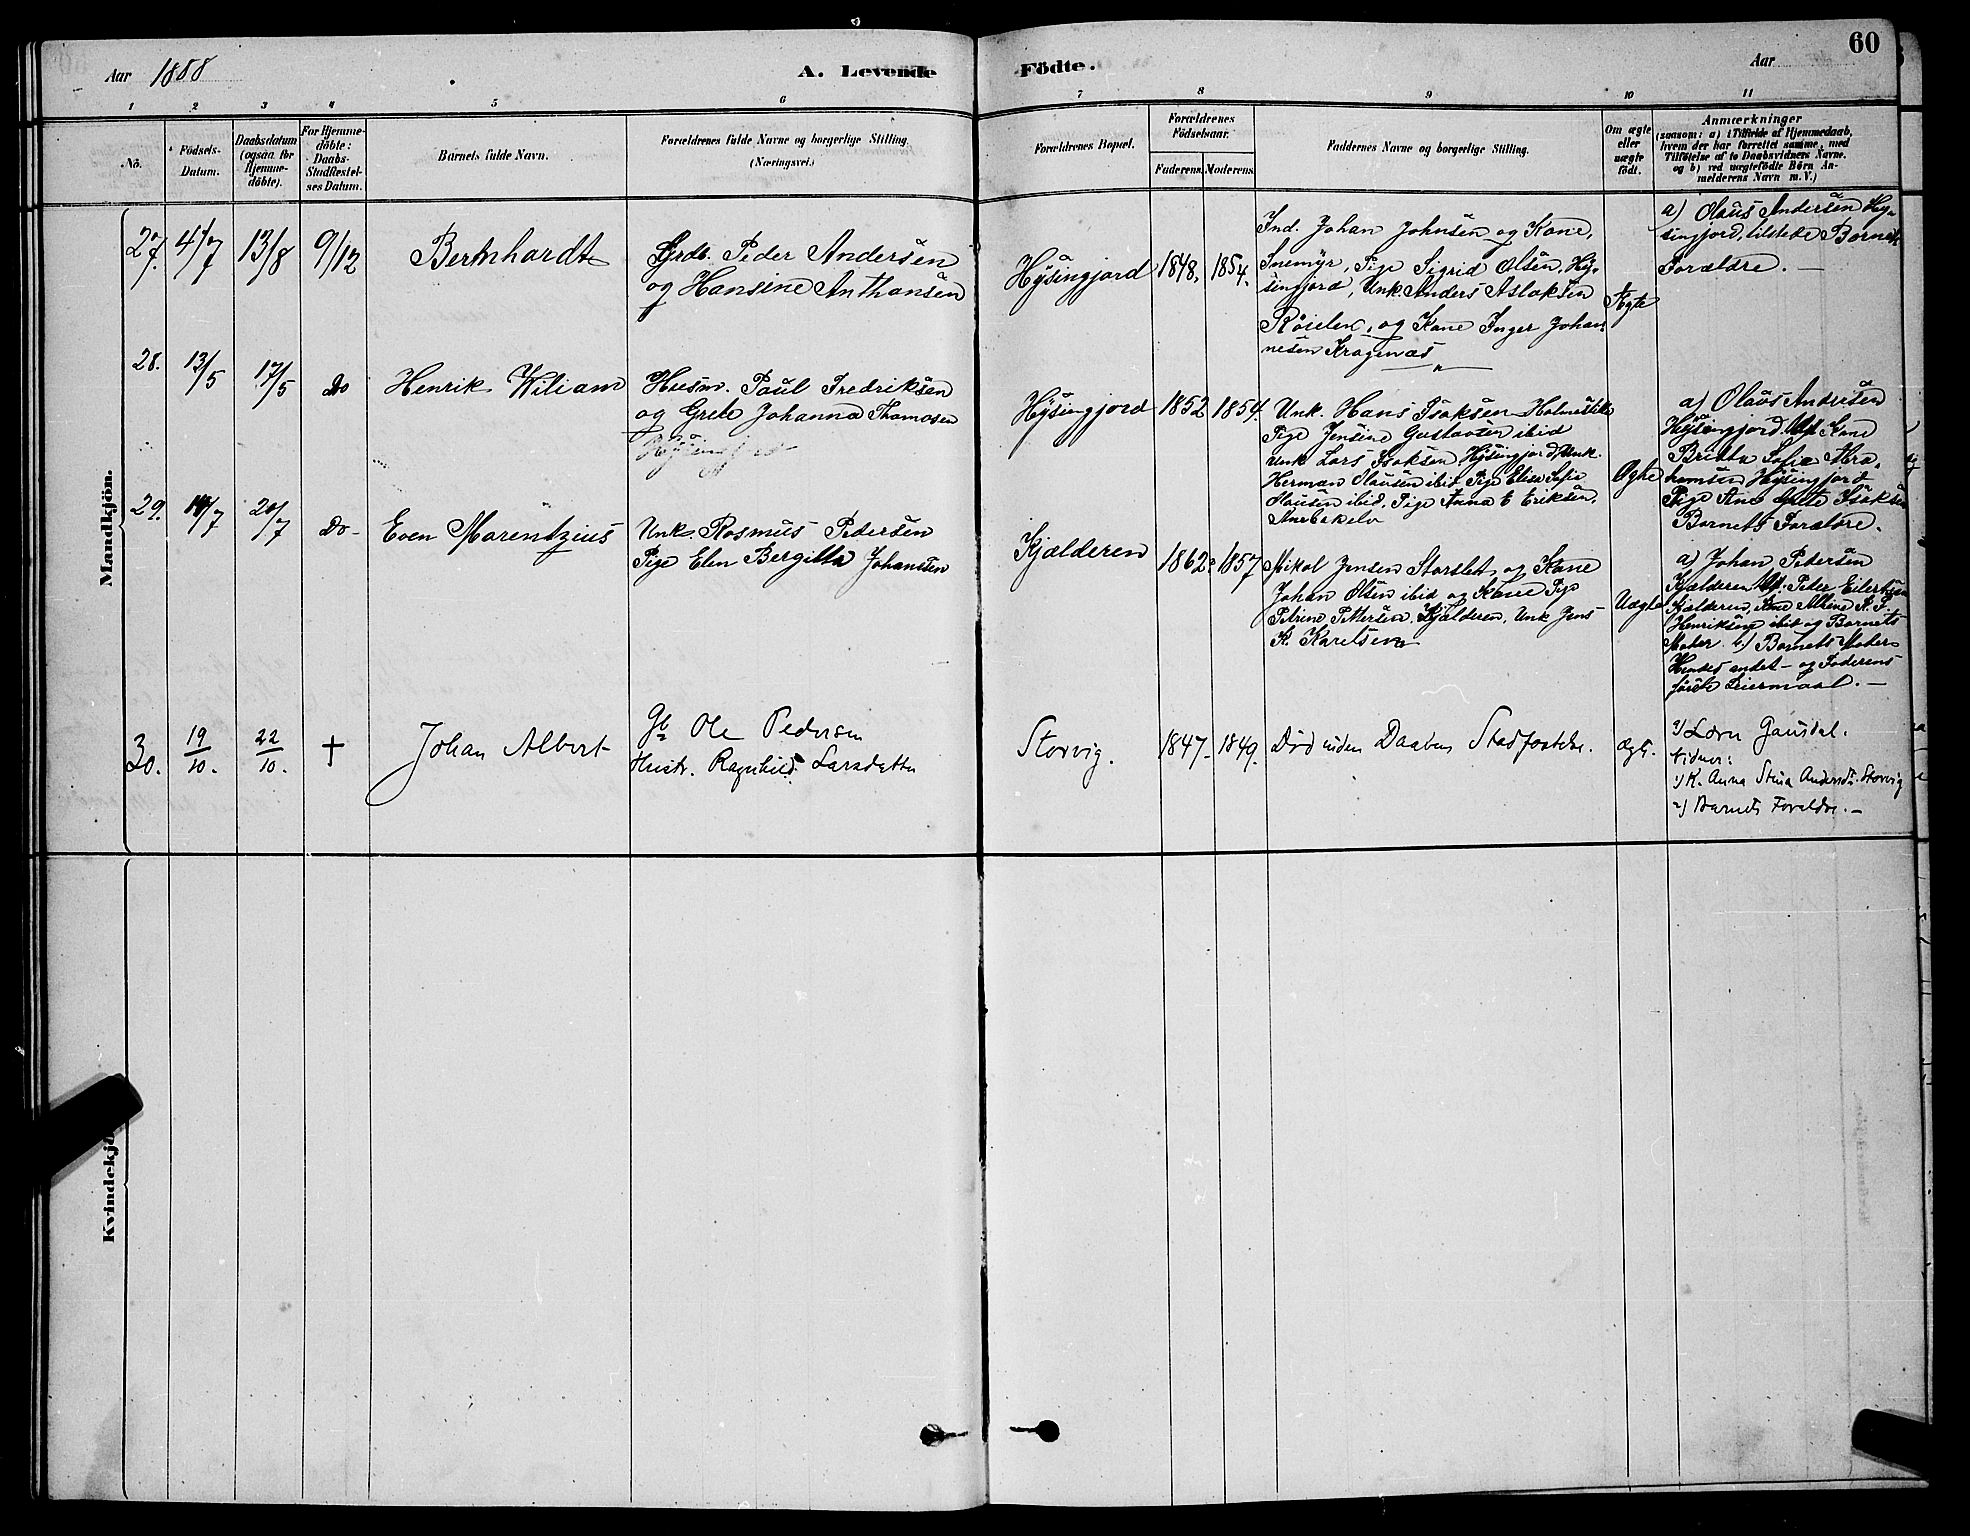 Aar 1888
A. Levende
Födte.
Aar
60
1 2 3 4 5 6 7 8 9 10 11
No.
Födsels-
Datum.
Daabsdatum
(ogsaa for
Hjemme-
döbte).
For Hjemme-
döbte:
Daabs-
Stadfæstel-
ses Datum.
Barnets fulde Navn.
Forældrenes fulde Navne og borgerlige Stilling
(Næringsvei.)
Forældrenes Bopæl.
Forældrenes
Födselsaar.
Faderens Moderens
Faddernes Navne og borgerlige Stilling.
Om ægte
eller
uægte
födt.
Anmærkninger
(saasom: a) i Tilfælde af Hjemmedaab,
hvem der har forrettet samme, med
Tilföielse af to Daabsvidners Navne.
og b) ved uægtefödte Börn An-
melderens Navn m. V.)
Mandkjön.
27. 4/7 13/8 9/12
Bernhardt
Grdb. Peder Andersen
og Hansine Anthonsen
Hysingjord
1848. 1854.
Ind. Johan Johnsen og Kone,
Snemyr, Pige Sigrid Olsen, Hy-
singjord, Unk. Anders Aslaksen
Röielen, og Kone Inger Johan
nesen Kragenæs
Ægte
a) Olaus Andersen Hy-
singjord, tilstede Barnets
Forældre. —
28. 13/5 17/5 Do
Henrik Wiliam
Husm. Paul Fredriksen
og Grete Johanna Thomasen
Hysingjord
Hysingjord
1852 1854.
Unk. Hans Isaksen Holmeslet
Pige Jensine Gustavsen ibid
Unk Lars Isaksen Hysingjord, Unk.
Herman Olausen ibid Pige Elise Sofie
Olausen ibid, Pige Anna E Eriksen,
Ægte
a) Olaus Andersen
Hysingjord, Kone
Britta Sofie Abra-
hamsen Hysingjord
Pige Ane Grete Isaksen
Barnets Forældre.
29. 14/7 20/7 Do-
Even Marentzius
Unk. Rasmus Pedersen
Pige Elen Bergitta Johansen
Kjælderen
1862. 1857
Mikal Jensen Storslet og Kone
Johan Olsen ibid og Kone Pige
Petrine Pettersen, Kjælderen, Unk Jens
K. Karelsen
Uægte
a) Johan Pedersen
Kjælderen Peder Eilertsen
Kjælderen,
Henriksen ibid og Barnets
Moder. b) Barnets Moder
Hendes andet- og Faderens
förste Leiermaal. —
30. 19/10. 22/10. +
Johan Albert
Gb Ole Pedersen
Hustr. Ragnhild Larsdatter
Storvig.
1847- 1849.
Död uden Daabens Stadfæstelse.
ægt.
a) Lærer Gausdal.
Vidner:
1) K. Anna Stina Andersd. Storvig
2) Barnets Forældre. —
Kvindekjö